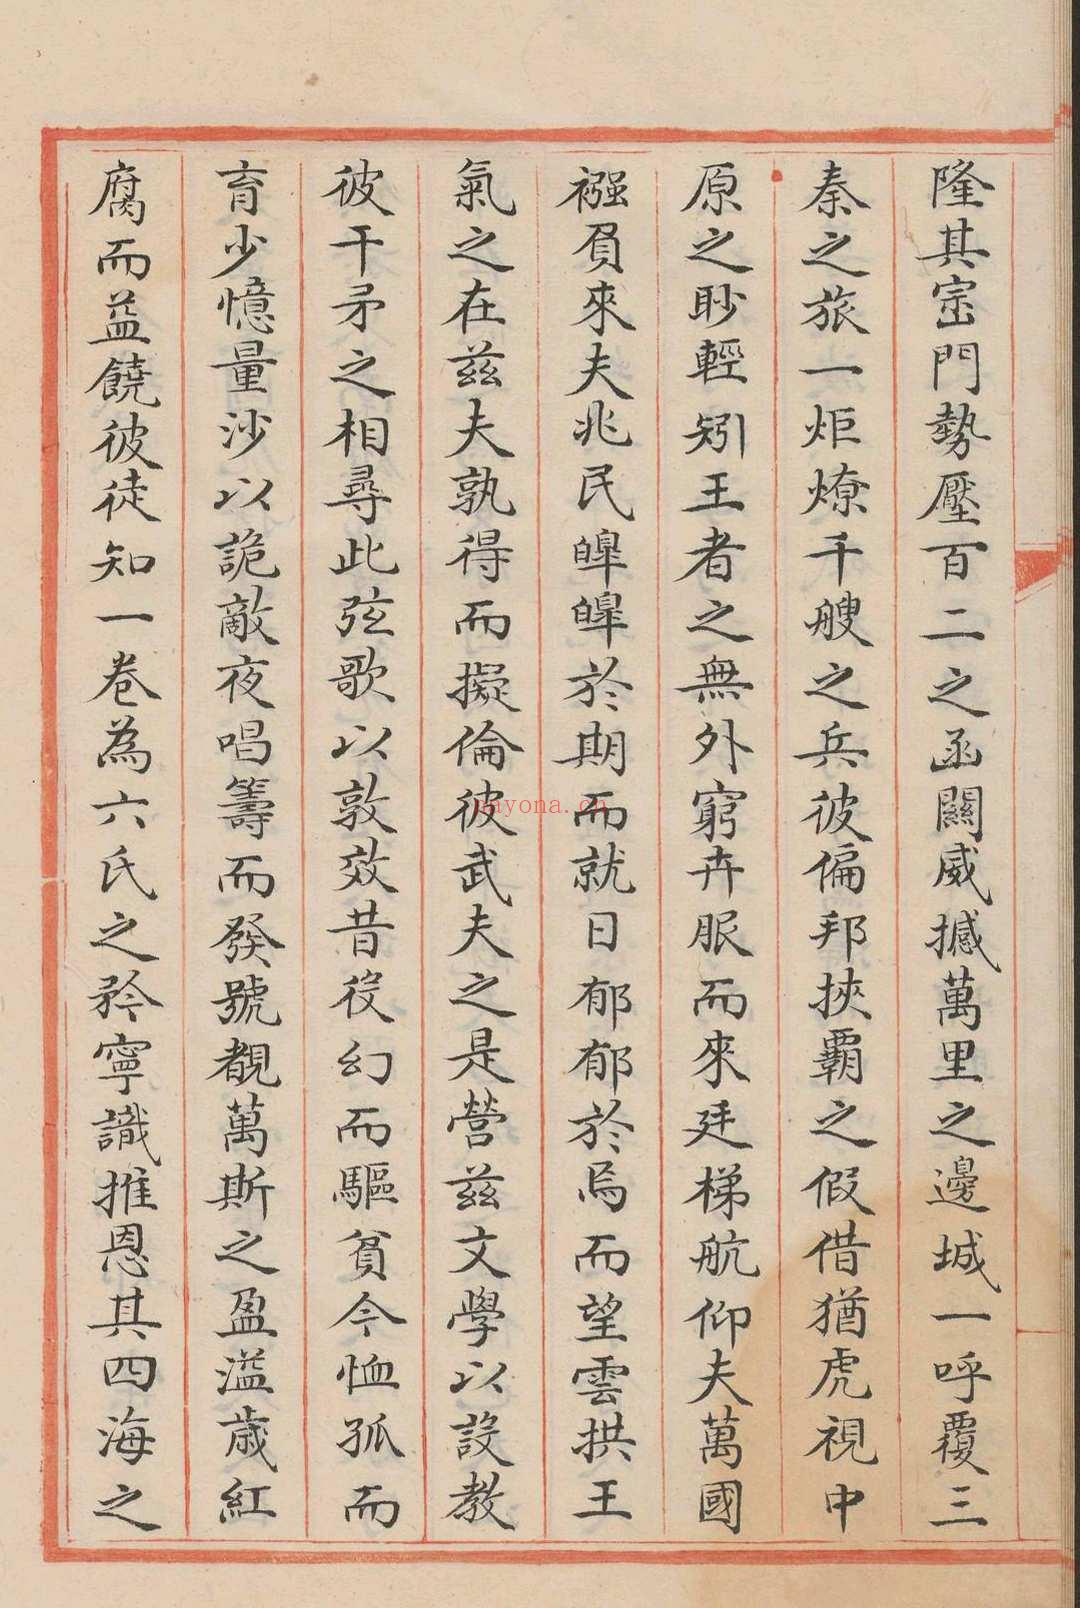 隆其宗門勢壓百二之函關威撼萬里之邊城一呼覆三
秦之旅一炬燎千艘之兵彼偏邦挾霸之假借猶虎視中
原之眇輕矧王者之無外窮卉服而來廷梯航仰夫萬國
襁負來夫兆民皞皞於期而就日郁郁於焉而望雲拱王
氣之在茲夫孰得而擬倫彼武夫之是營茲文學以設教
彼干矛之相尋此弦歌以敦效昔役幻而驅貧今恤孤而
育少憶量沙以詭敵夜唱籌而發號覩萬斯之盈溢歲紅
腐而益饒彼徒知一卷為六氏之矜寧識推恩其四海之